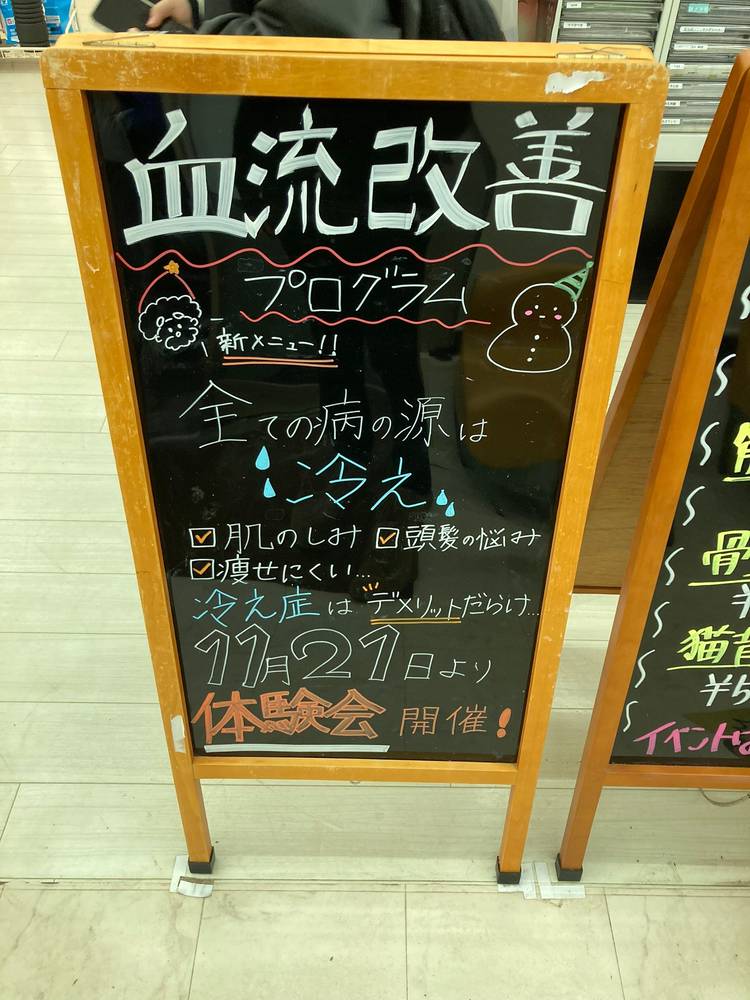 血流改善
プログラム
新メニュー!!
全ての病の源は
冷え
肌のしみ 頭髪の悩み
痩せにくい...
冷え症はデメリットだらけ...
11月21日より
体験会 開催!
猫背
イベントは